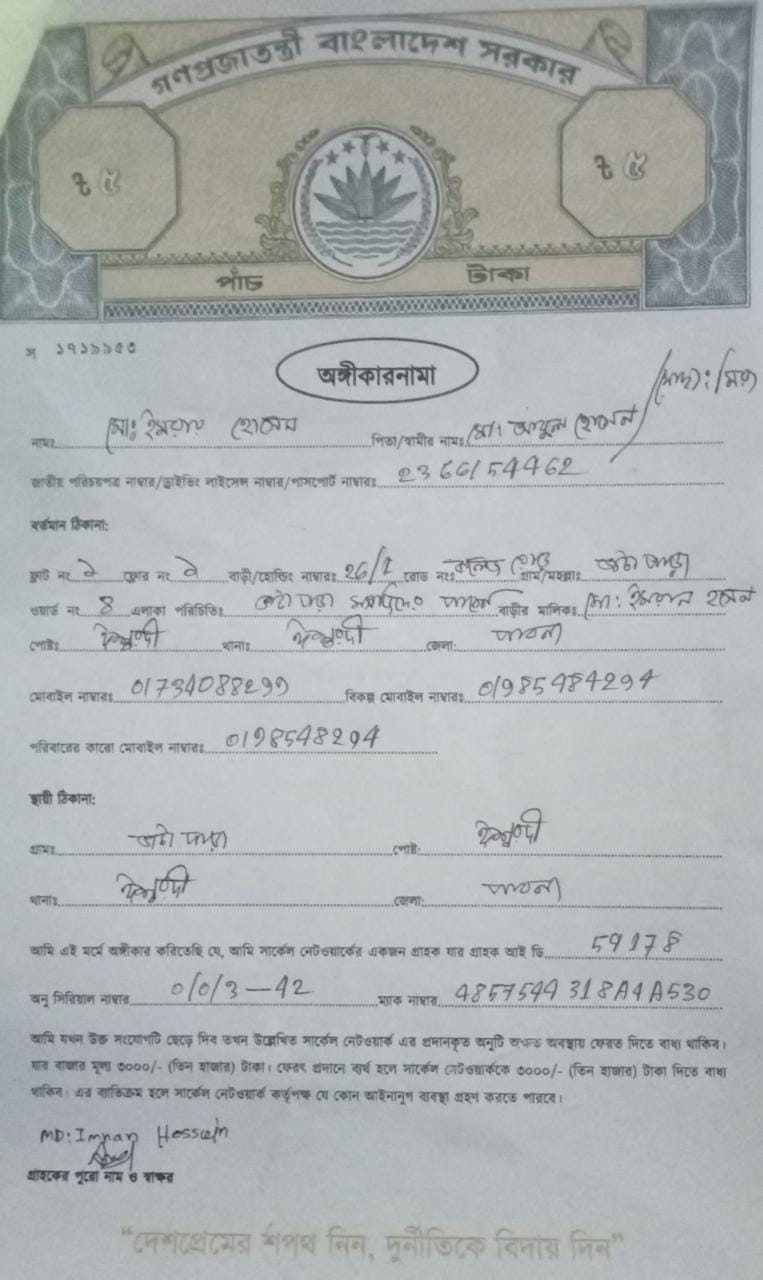 গণপ্রজাতন্ত্রী বাংলাদেশ সরকার
৳ ৫ ৳ ৫
পাঁচ টাকা
স ১৭১৯৯৫৩
অঙ্গীকারনামা
নামঃ মো: ইমরান হোসেন পিতা/স্বামীর নামঃ মো: আবুল হোসেন
জাতীয় পরিচয়পত্র নাম্বার/ড্রাইভিং লাইসেন্স নাম্বার/পাসপোর্ট নাম্বারঃ 2366154462
বর্তমান ঠিকানা:
ফ্লাট নং ফ্লোর নং বাড়ী/হোল্ডিং নাম্বারঃ 26/1 রোড নংঃ গ্রাম/মহল্লাঃ
ওয়ার্ড নং 8 এলাকা পরিচিতিঃ বাড়ীর মালিকঃ মো: ইমরান হোসেন
পোষ্টঃ ঈশ্বরদী থানাঃ ঈশ্বরদী জেলা: পাবনা
মোবাইল নাম্বারঃ 01734088299 বিকল্প মোবাইল নাম্বারঃ 01985484294
পরিবারের কারো মোবাইল নাম্বারঃ 0198548294
স্থায়ী ঠিকানা:
গ্রামঃ পোষ্ট: ঈশ্বরদী
থানাঃ ঈশ্বরদী জেলা: পাবনা
আমি এই মর্মে অঙ্গীকার করিতেছি যে, আমি সার্কেল নেটওয়ার্কের একজন গ্রাহক যার গ্রাহক আই ডি 59178
অনু সিরিয়াল নাম্বার 0/0/3-42 ম্যাক নাম্বার 4857544318A4A530
আমি যখন উক্ত সংযোগটি ছেড়ে দিব তখন উল্লেখিত সার্কেল নেটওয়ার্ক এর প্রদানকৃত অনুটি অক্ষত অবস্থায় ফেরত দিতে বাধ্য থাকিব।
যার বাজার মূল্য ৩০০০/- (তিন হাজার) টাকা। ফেরৎ প্রদানে ব্যর্থ হলে সার্কেল নেটওয়ার্ককে ৩০০০/- (তিন হাজার) টাকা দিতে বাধ্য
থাকিব। এর ব্যতিক্রম হলে সার্কেল নেটওয়ার্ক কর্তৃপক্ষ যে কোন আইনানুগ ব্যবস্থা গ্রহণ করতে পারবে।
MD: Imran Hossain
গ্রাহকের পুরো নাম ও স্বাক্ষর
“দেশপ্রেমের শপথ নিন, দুর্নীতিকে বিদায় দিন”